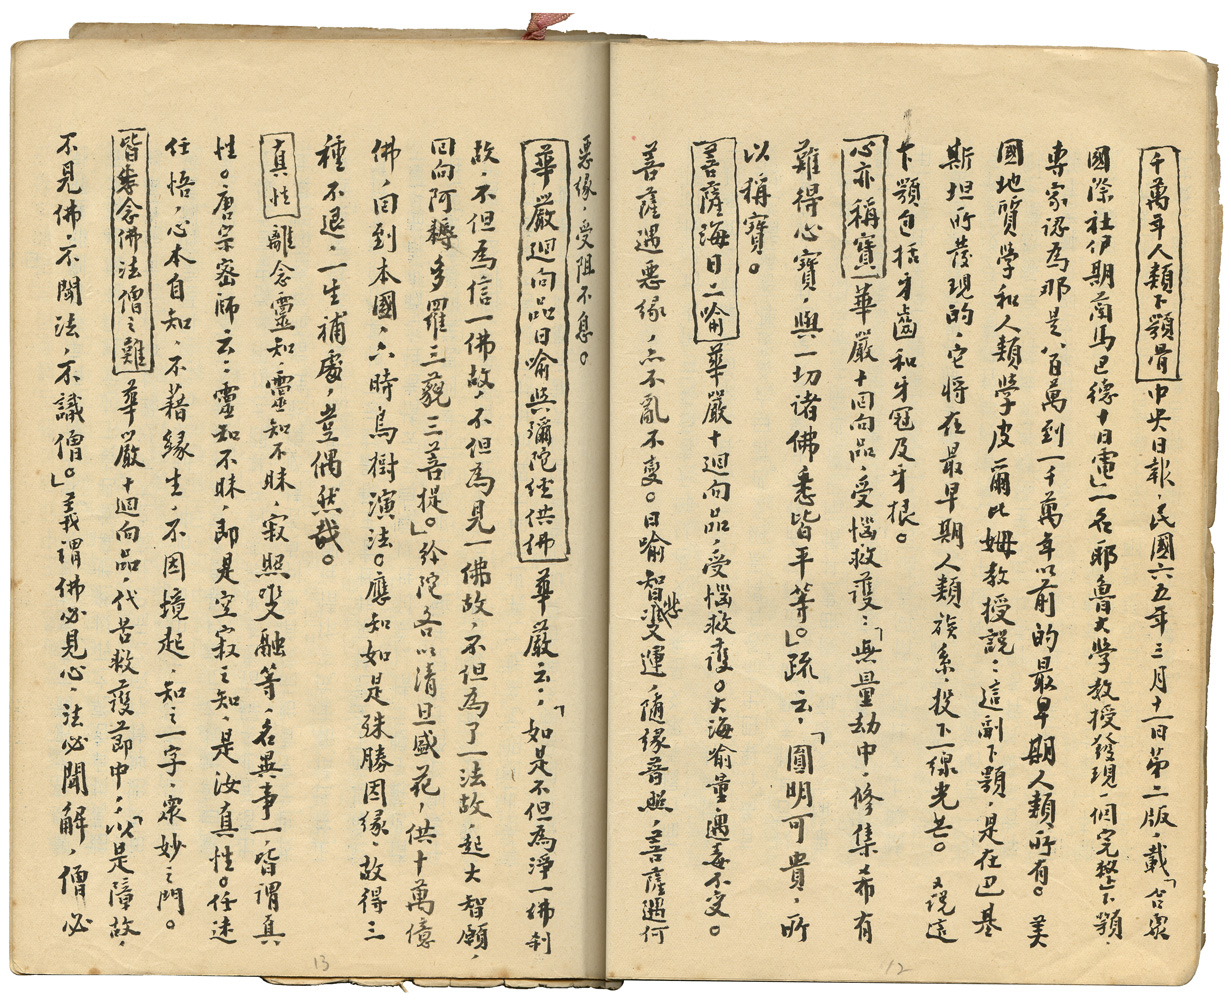 千萬年人類下顎骨 中央日報，民國六五年三月十一日第二版，載「合衆
國際社伊期蘭馬巴德十日電」一名耶魯大學教授發現一個完整下顎，
專家認為那是八百萬到一千萬年以前的最早期人類所有。美
國地質學和人類學皮爾比姆教授說：這副下顎，是在巴基
斯坦所發現的，它將在最早期人類族系，投下一線光芒。又說這
下顎包括牙齒和牙冠及牙根。
心亦稱寶 華嚴十回向品，受惱救護：「無量劫中，修集希有
難得心寶，與一切諸佛悉皆平等。」疏云，「圓明可貴，所
以稱寶。
菩薩海日二喻 華嚴十迴向品，受惱救護。大海喻量，遇毒不變。
菩薩遇惡緣，亦不亂不變。日喻智悲雙運，隨緣普照，菩薩遇何
惡緣，受阻不息。
華嚴迴向品日喻與彌陀經供佛 華嚴云：，「如是不但為淨一佛刹
故，不但為信一佛故，不但為見一佛故，不但為了一法故，起大智願，
回向阿耨多羅三藐三菩提。」彌陀各以清旦盛花，供十萬億
佛，回到本國，六時鳥樹演法。應知如是殊勝因緣，故得三
種不退，一生補處，豈偶然哉。
真性 離念靈知，靈知不昧，寂照雙融等，名異事一，皆謂真
性。唐宗密師云：靈知不昧，即是空寂之知，是汝真性。任迷
任悟，心本自知，不藉緣生，不因境起，知之一字，衆妙之門。
皆念佛法僧之難 華嚴十迴向品，代苦救護節中：，「以是障故，
不見佛，不聞法，不識僧。」義謂佛必見心，法必聞解，僧必
12
13